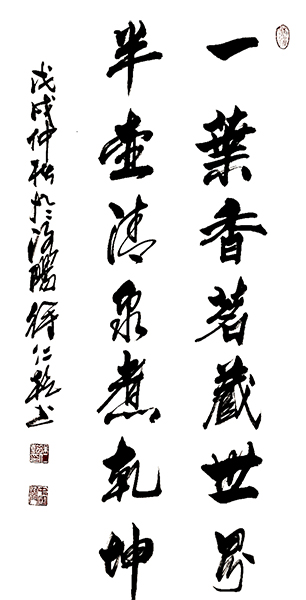 一葉香茗藏世界
半壺清泉煮乾坤
戊戌仲秋於洛陽徐仁乾书